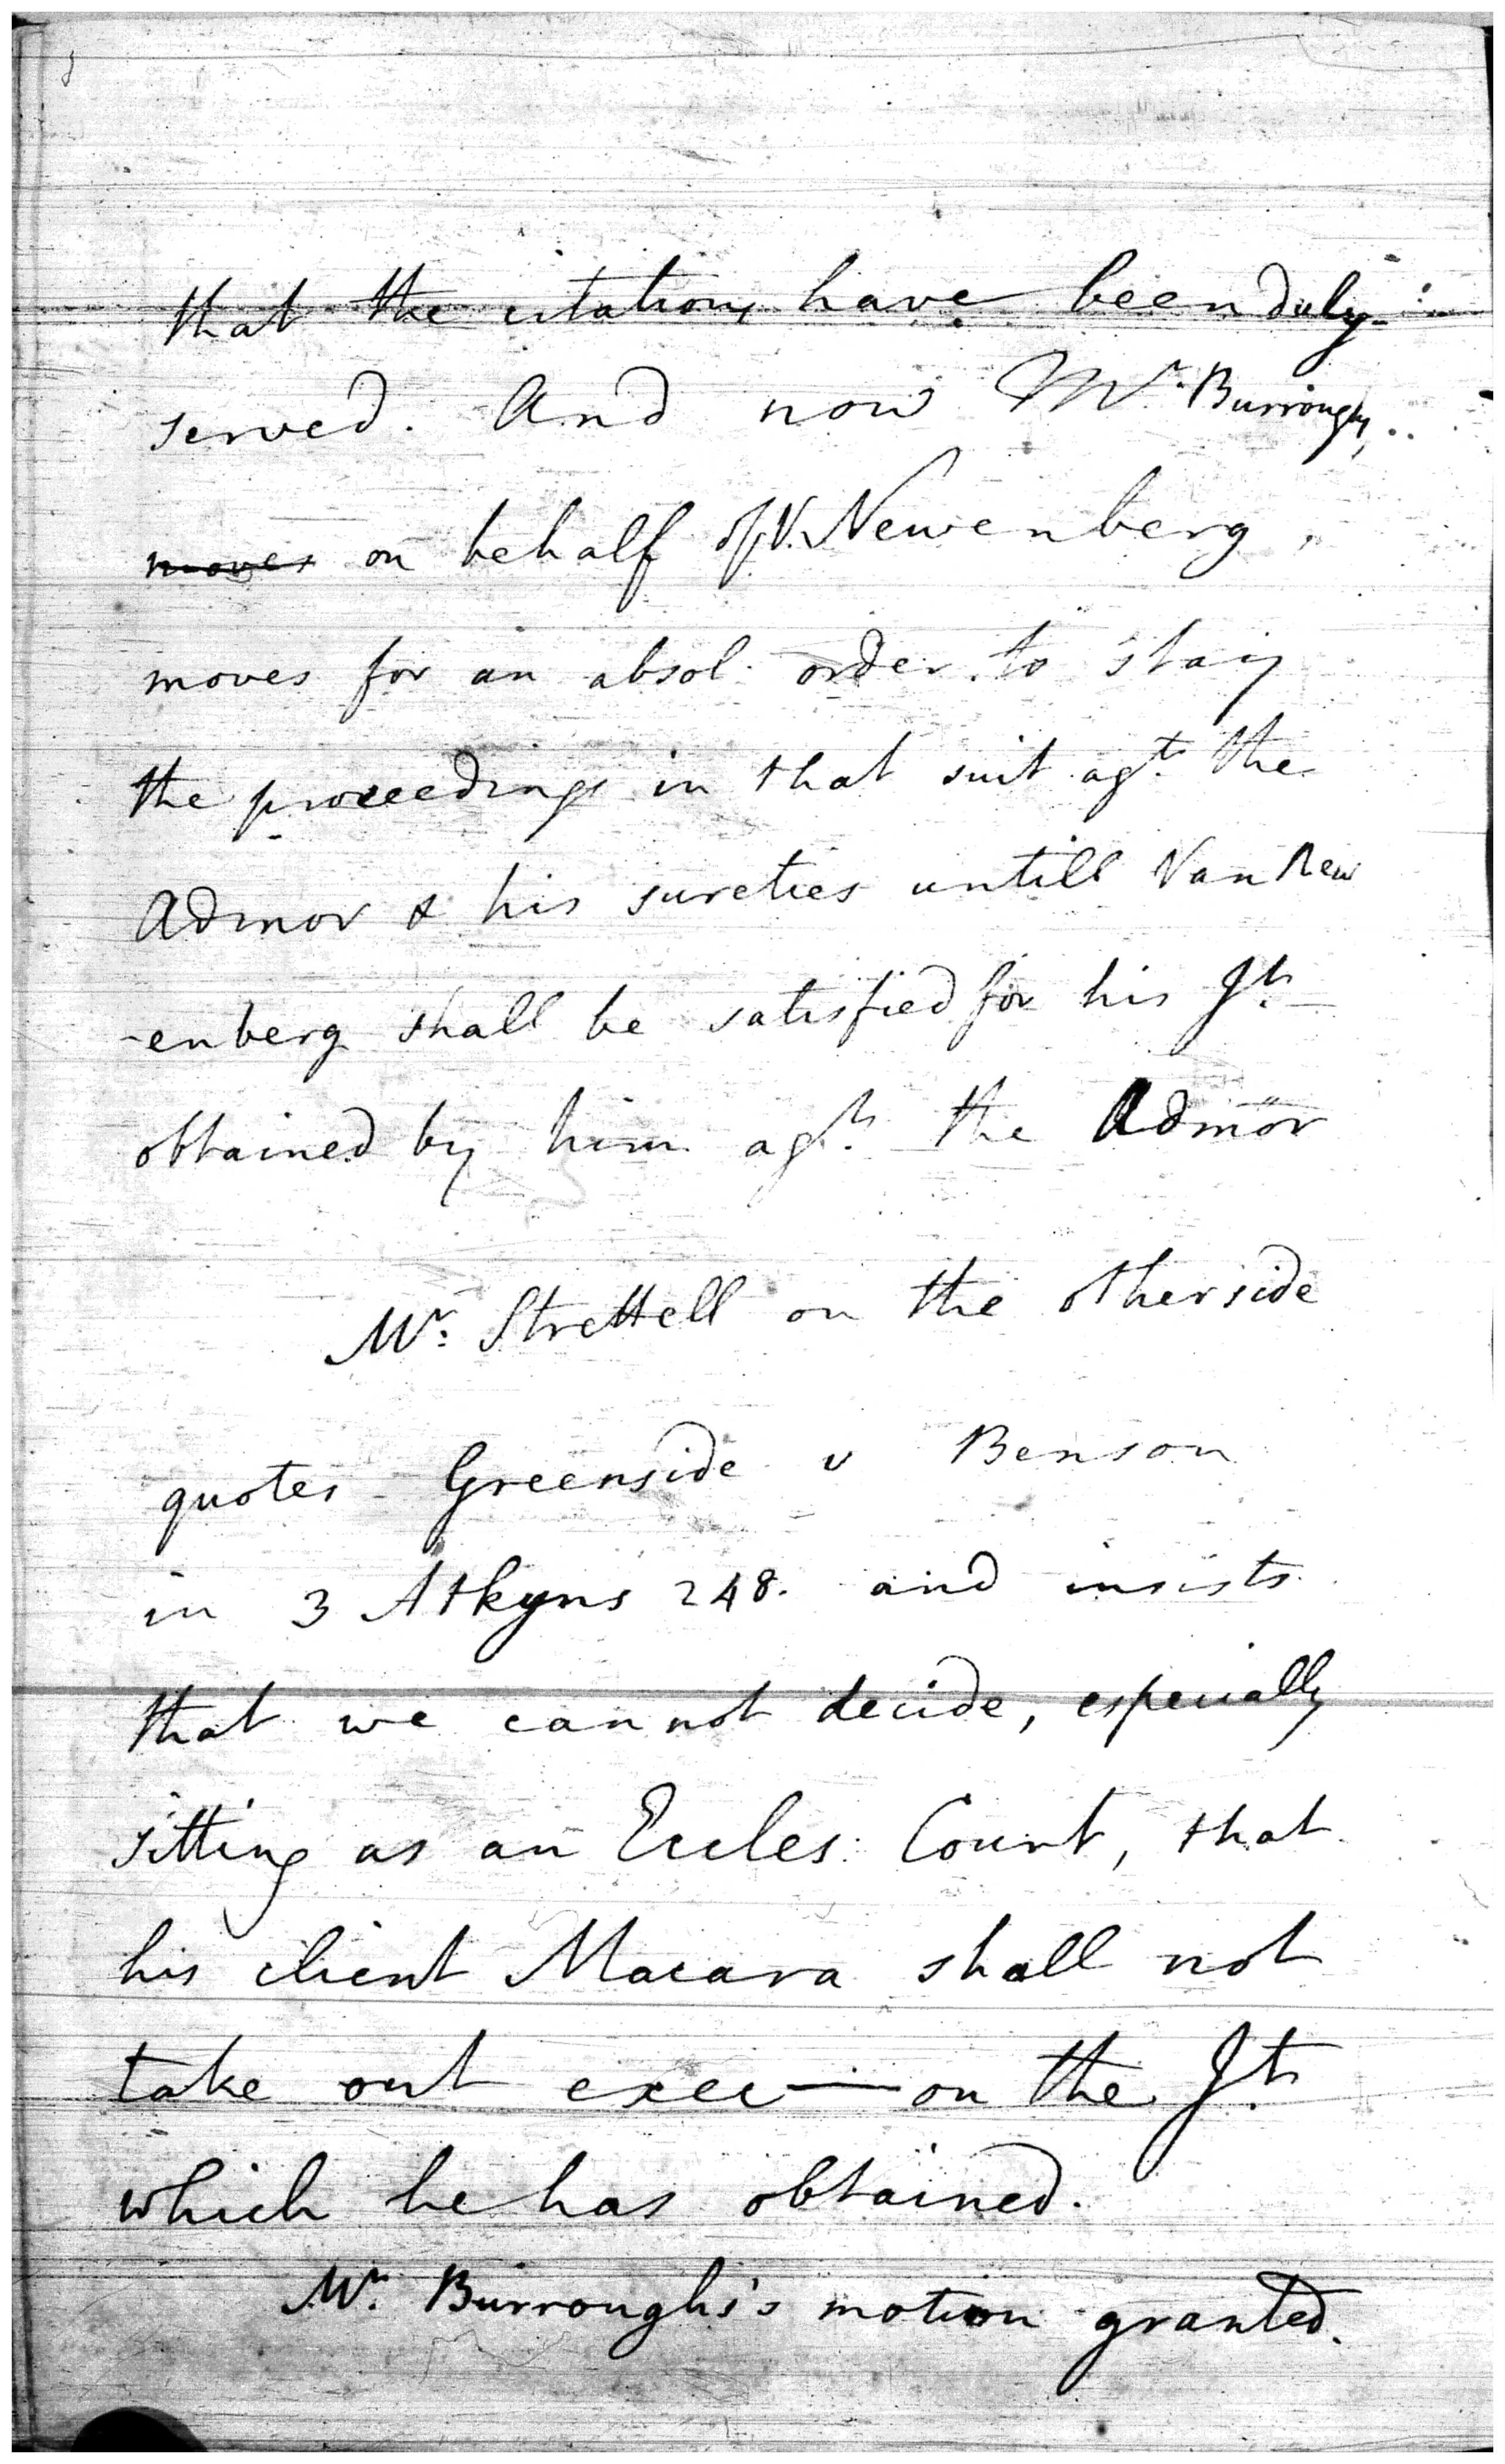 that the citations have been duly
served. And now Mr. Burroughs,
moves on behalf of V. Newenberg,
moves for an absol. order to stay
the proceedings in that suit agt. the
Admor & his sureties untill Van New
-enberg shall be satisfied for his Jt.
obtained by him agt. the Admor
Mr. Strettell on the other side
quotes Greenside v Benson
in 3 Atkyns 248. and insists
that we cannot decide, especially
sitting as an Eccles: Court, that
his client Macara shall not
take out exec— on the Jt.
which he has obtained.
Mr. Burroughs's motion granted.